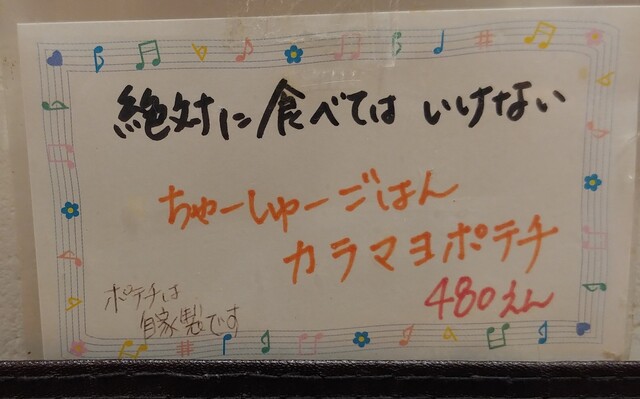 絶対に食べてはいけない
ちゃーしゅーごはん
カラマヨポテチ
480えん
ポテチは
自家製です